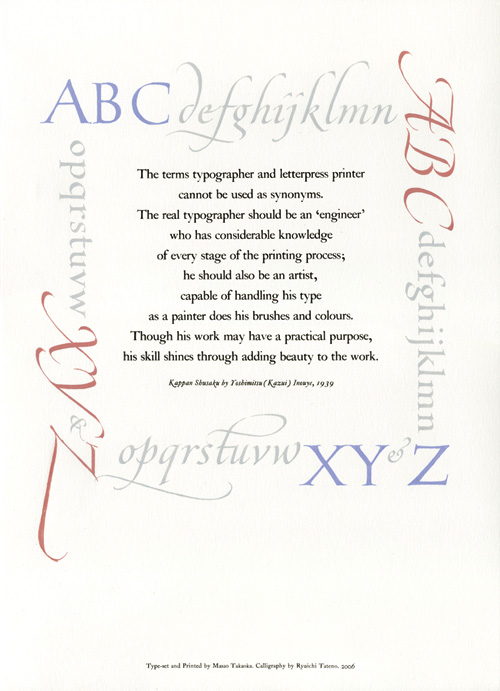 ABC defghijklmn
ABC defghijklmn
opqrstuvw XYZ &
The terms typographer and letterpress printer
cannot be used as synonyms.
The real typographer should be an ‘engineer’
who has considerable knowledge
of every stage of the printing process;
he should also be an artist,
capable of handling his type
as a painter does his brushes and colours.
Though his work may have a practical purpose,
his skill shines through adding beauty to the work.
Kappan Shusaku by Yoshimitsu (Kazui) Inouye, 1939
opqrstuvw XY & Z
Type-set and Printed by Masao Takaoka. Calligraphy by Ryuichi Tateno. 2006